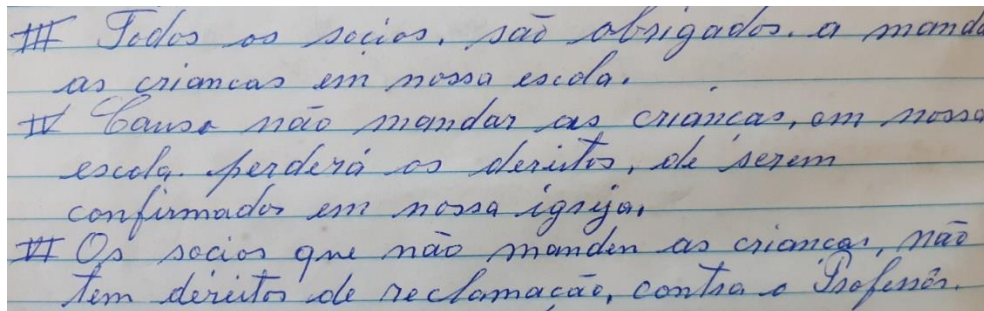 III Todos os socios, são obrigados. a manda
as criancas em nossa escola.
IV Causo não mandar as criancas, em nossa
escola. perderá os dereitos, de serem
confirmados em nossa igreja,
VI Os socios que não manden as criancas, não
tem dereitos de reclamação, contra o Professôr.